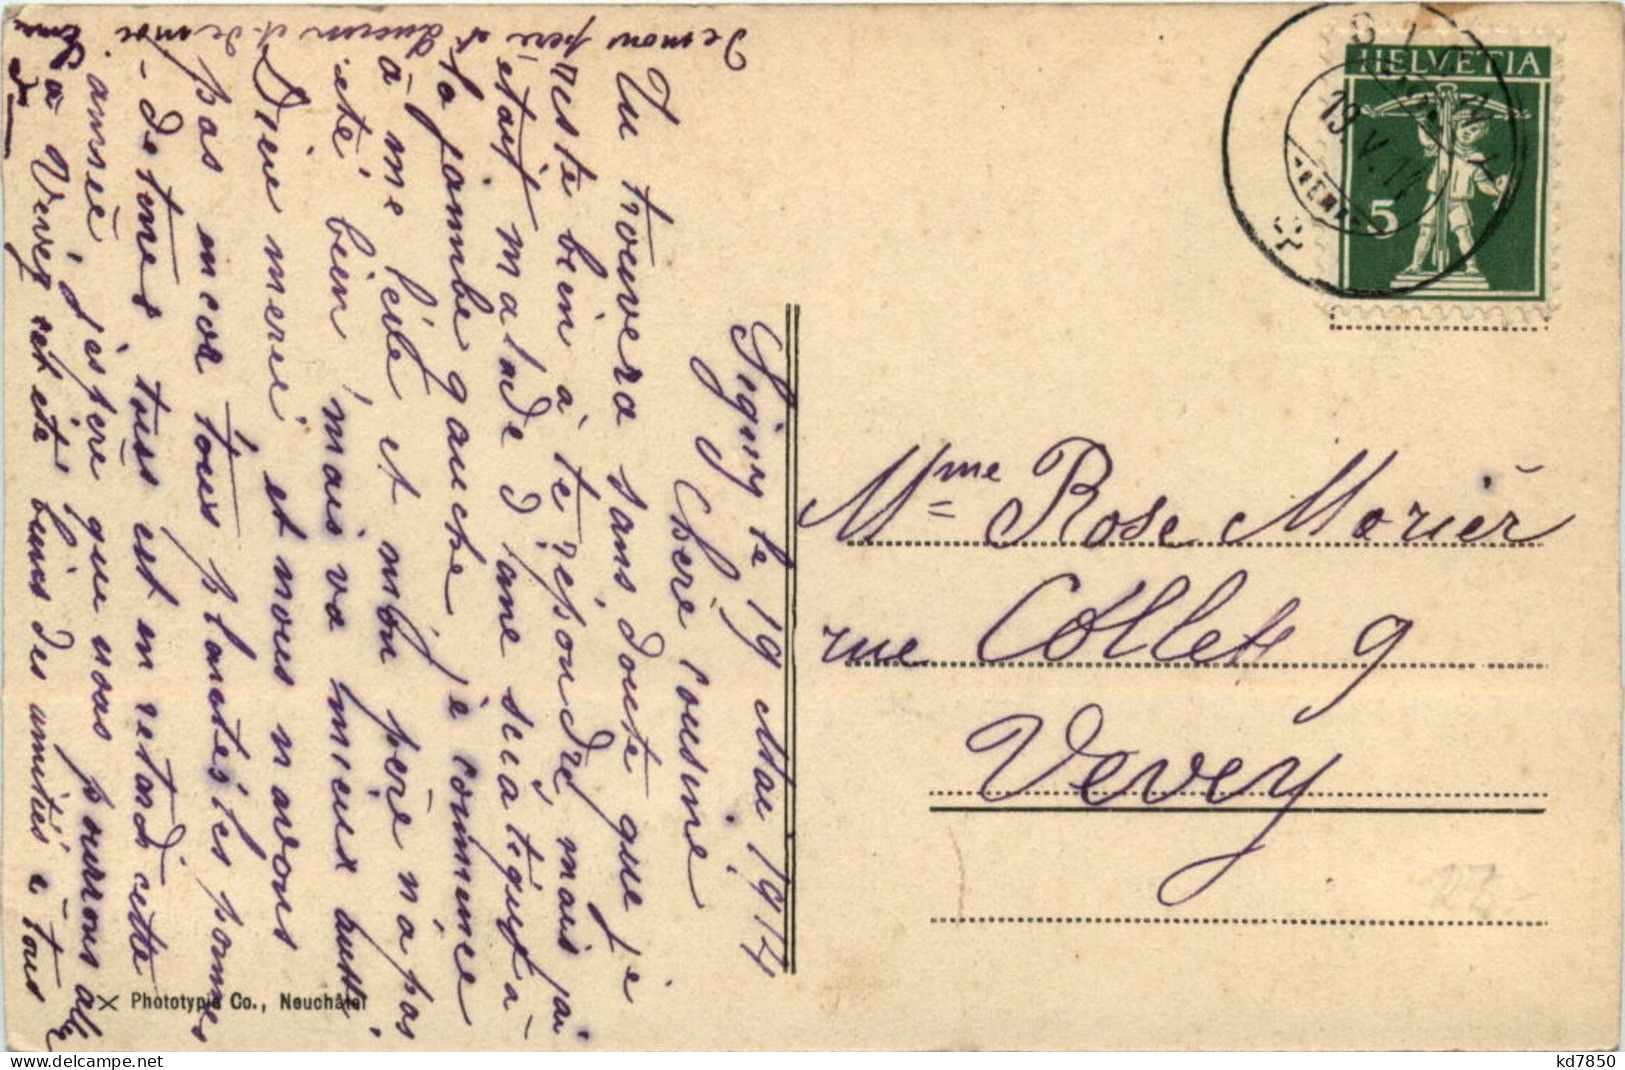 Signy le 19 Mai 1914
Chère Cousine
Tu trouvera sans doute que je
reste bein à te répondre, mais j'ai
était malade d'une sciatique à
la jambe gauche je commence
à me levé et mon père n'a pas
été bien mais va mieux aussi
Dieu merie et nous n'avons
pas encor tous plantés les pommes
-detères tous est en retard cette
année j'espère que nous pourrons aler
à Vevey cet été bones des amitiés à tous
De mon père et Lucien et de moi
HELVETIA
5
19.V.14
Mme Rose Morier
rue Collet 9
Vevey
Phototypie Co., Neuchâtel
www.delcampe.net
kd7850